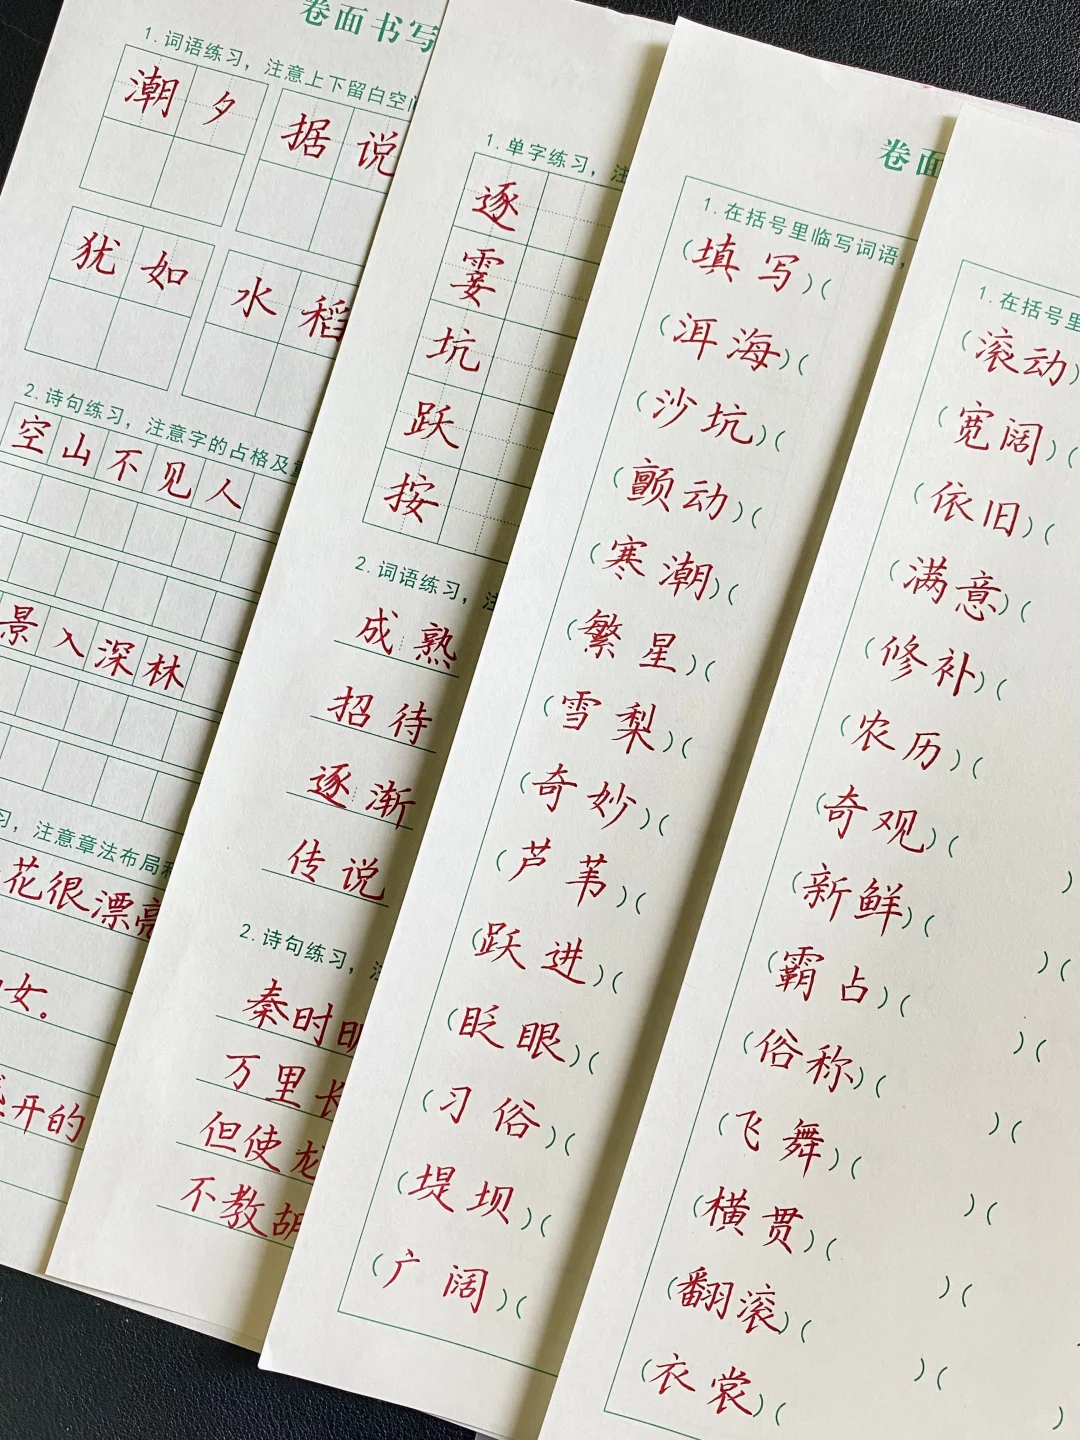 卷面书写
1.词语练习，注意上下留白空间
潮夕
据说
犹如
水稻
2.诗句练习，注意字的占格及重
空山不见人
景入深林
习，注意章法布局和
花很漂亮
女。
开的
1.单字练习，注
逐
霎
坑
跃
按
2.词语练习，注
成熟
招待
逐渐
传说
2.诗句练习，注
秦时明
万里长
但使龙
不教胡
卷面
1.在括号里临写词语，
（填写）（
（洱海）（
（沙坑）（
（颤动）（
（寒潮）（
（繁星）（
（雪梨）（
（奇妙）（
（芦苇）（
（跃进）（
（眨眼）（
（习俗）（
（堤坝）（
（广阔）（
1.在括号里
（滚动）
（宽阔）（
（依旧）（
（满意）（
（修补）（
（农历）（
（奇观）（
（新鲜）（ ）
（霸占）（ ）（
（俗称）（ ）（
（飞舞）（ ）（
（横贯）（ ）（
（翻滚）（ ）（
（衣裳）（ ）（ ）